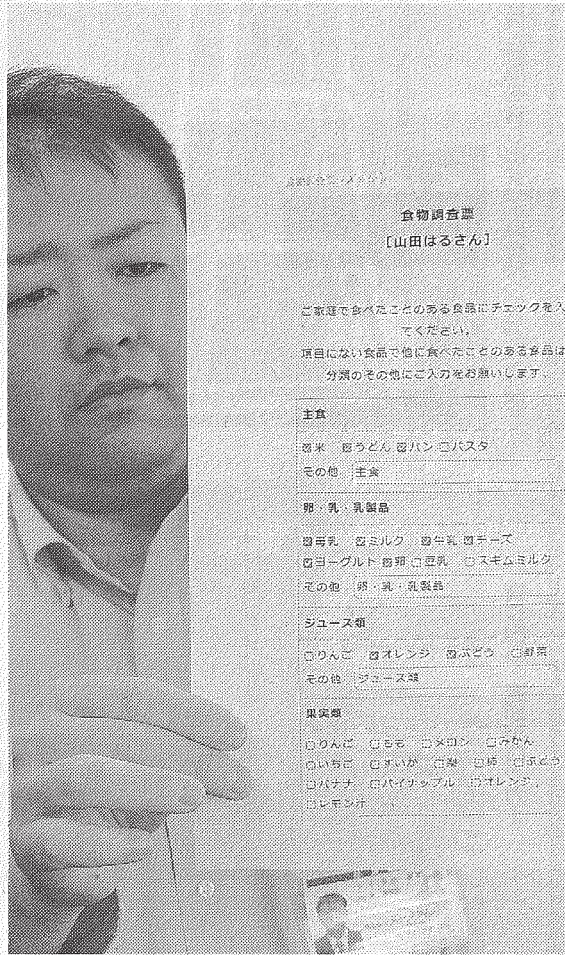 食物調査票
[山田はるさん]
ご家庭で食べたことのある食品にチェックを入
てください。
項目にない食品で他に食べたことのある食品は
分類のその他にご入力をお願いします。
主食
☑米 ☑うどん ☑パン □パスタ
その他 主食
卵・乳・乳製品
☑母乳 ☑ミルク ☑牛乳 ☑チーズ
☑ヨーグルト ☑卵 □豆乳 □スキムミルク
その他 卵・乳・乳製品
ジュース類
□りんご ☑オレンジ ☑ぶどう □野菜
その他 ジュース類
果実類
□りんご □もも □メロン □みかん
□いちご □すいか □梨 □柿 □ぶどう
□バナナ □パイナップル □オレンジ
□レモン汁